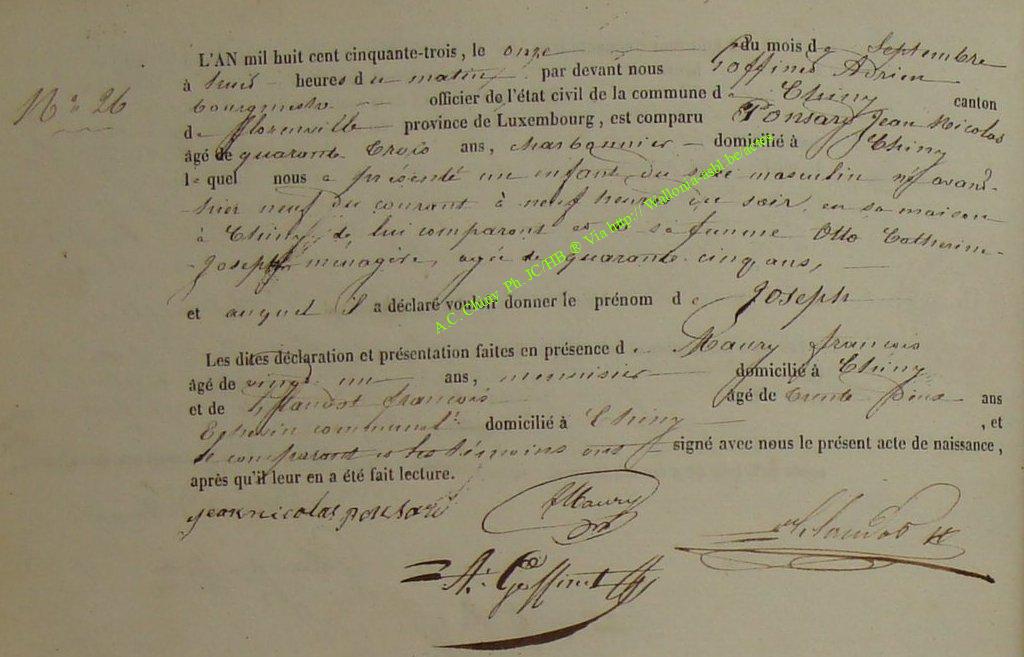 N° 26
L'AN mil huit cent cinquante-trois, le onze du mois de Septembre
à huit heures du matin, par devant nous Goffinet Adrien
bourgmestre officier de l'état civil de la commune de Chiny canton
de Florenville province de Luxembourg, est comparu Ponsard Jean Nicolas
âgé de quarante trois ans, charbonnier domicilié à Chiny
lequel nous a présenté un enfant du sexe masculin né avant-
hier neuf du courant à neuf heures du soir, en sa maison
à Chiny, de lui comparant et de sa femme Otto Catherine
Joseph ménagère, agée de quarante cinq ans,
et auquel il a déclaré vouloir donner le prénom de Joseph
Les dites déclaration et présentation faites en présence de Maury françois
âgé de vingt un ans, menuisier domicilié à Chiny
et de françois âgé de trente deux ans
communal domicilié à Chiny , et
le comparant et les témoins ont signé avec nous le présent acte de naissance,
après qu'il leur en a été fait lecture.
jean nicolas ponsard
fMaury
A. Goffinet
A.C. Chiny Ph. JC/HB ® Via http://Wallonia-asbl.be/actes